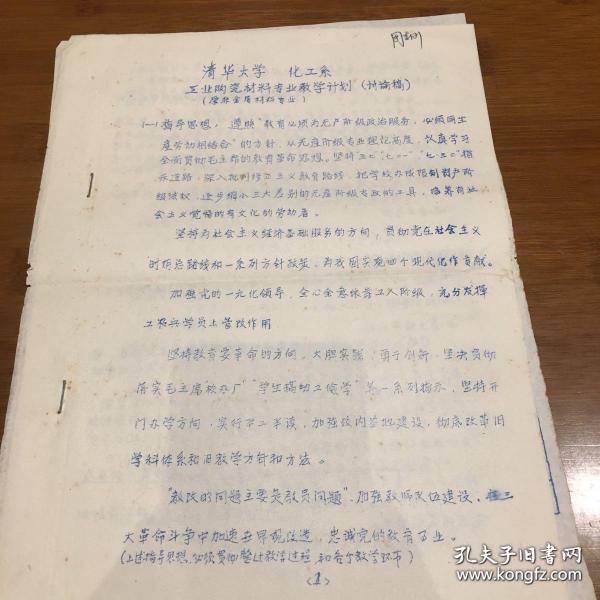 清华大学 化工系
工业陶瓷材料专业教学计划（讨论稿）
（原非金属材料专业）
(一) 指导思想， 遵照"教育必须为无产阶级政治服务，必须同生
产劳动相结合"的方针，从无产阶级专业理论高度，认真学习
全面贯彻毛主席的教育革命思想。坚持"五七""七·二一""七·三〇"指
示道路，深入批判修正主义教育路线，把学校办成限制资产阶
级法权，逐步缩小三大差别的无产阶级专政的工具，培养有社
会主义觉悟的有文化的劳动者。
坚持为社会主义经济基础服务的方向，贯彻党在社会主义
时期总路线和一系列方针政策，为我国实现四个现代化作贡献。
加强党的一元化领导，全心全意依靠工人阶级，充分发挥
工农兵学员上管改作用
坚持教育要革命的方向，大胆实践，勇于创新，坚决贯彻
落实毛主席"校办厂""学生搞点工候学"等一系列指示，坚持开
门办学方向，实行半工半读，加强校内基地建设，彻底改革旧
学科体系和旧教学方针和方法。
"教改的问题主要是教员问题"，加强教师队伍建设，在三
大革命斗争中加速世界观改造，忠诚党的教育事业。
（上述指导思想，必须贯彻整个教学过程和各个教学环节）
<1>
孔夫子旧书网
www.kongfz.com